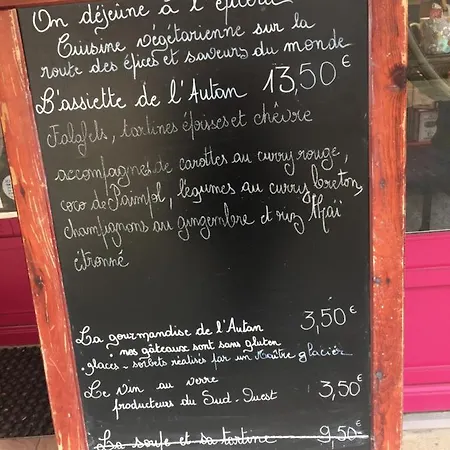 On déjeune à l'épicerie
Cuisine végétarienne sur la
route des épices et saveurs du monde
L'assiette de l'Autan 13,50€
Falafels, tartines époisses et chêvre
accompagnés de carottes au curry rouge,
coco de Paimpol, légumes au curry breton,
champignons au gingembre et riz Thaï
citronné
La gourmandise de l'Autan 3,50€
• nos gâteaux sont sans gluten
• glaces - sorbets réalisés par un Maître glacier
Le vin au verre 3,50€
producteurs du Sud-Ouest
La soupe et sa tartine 9,50€